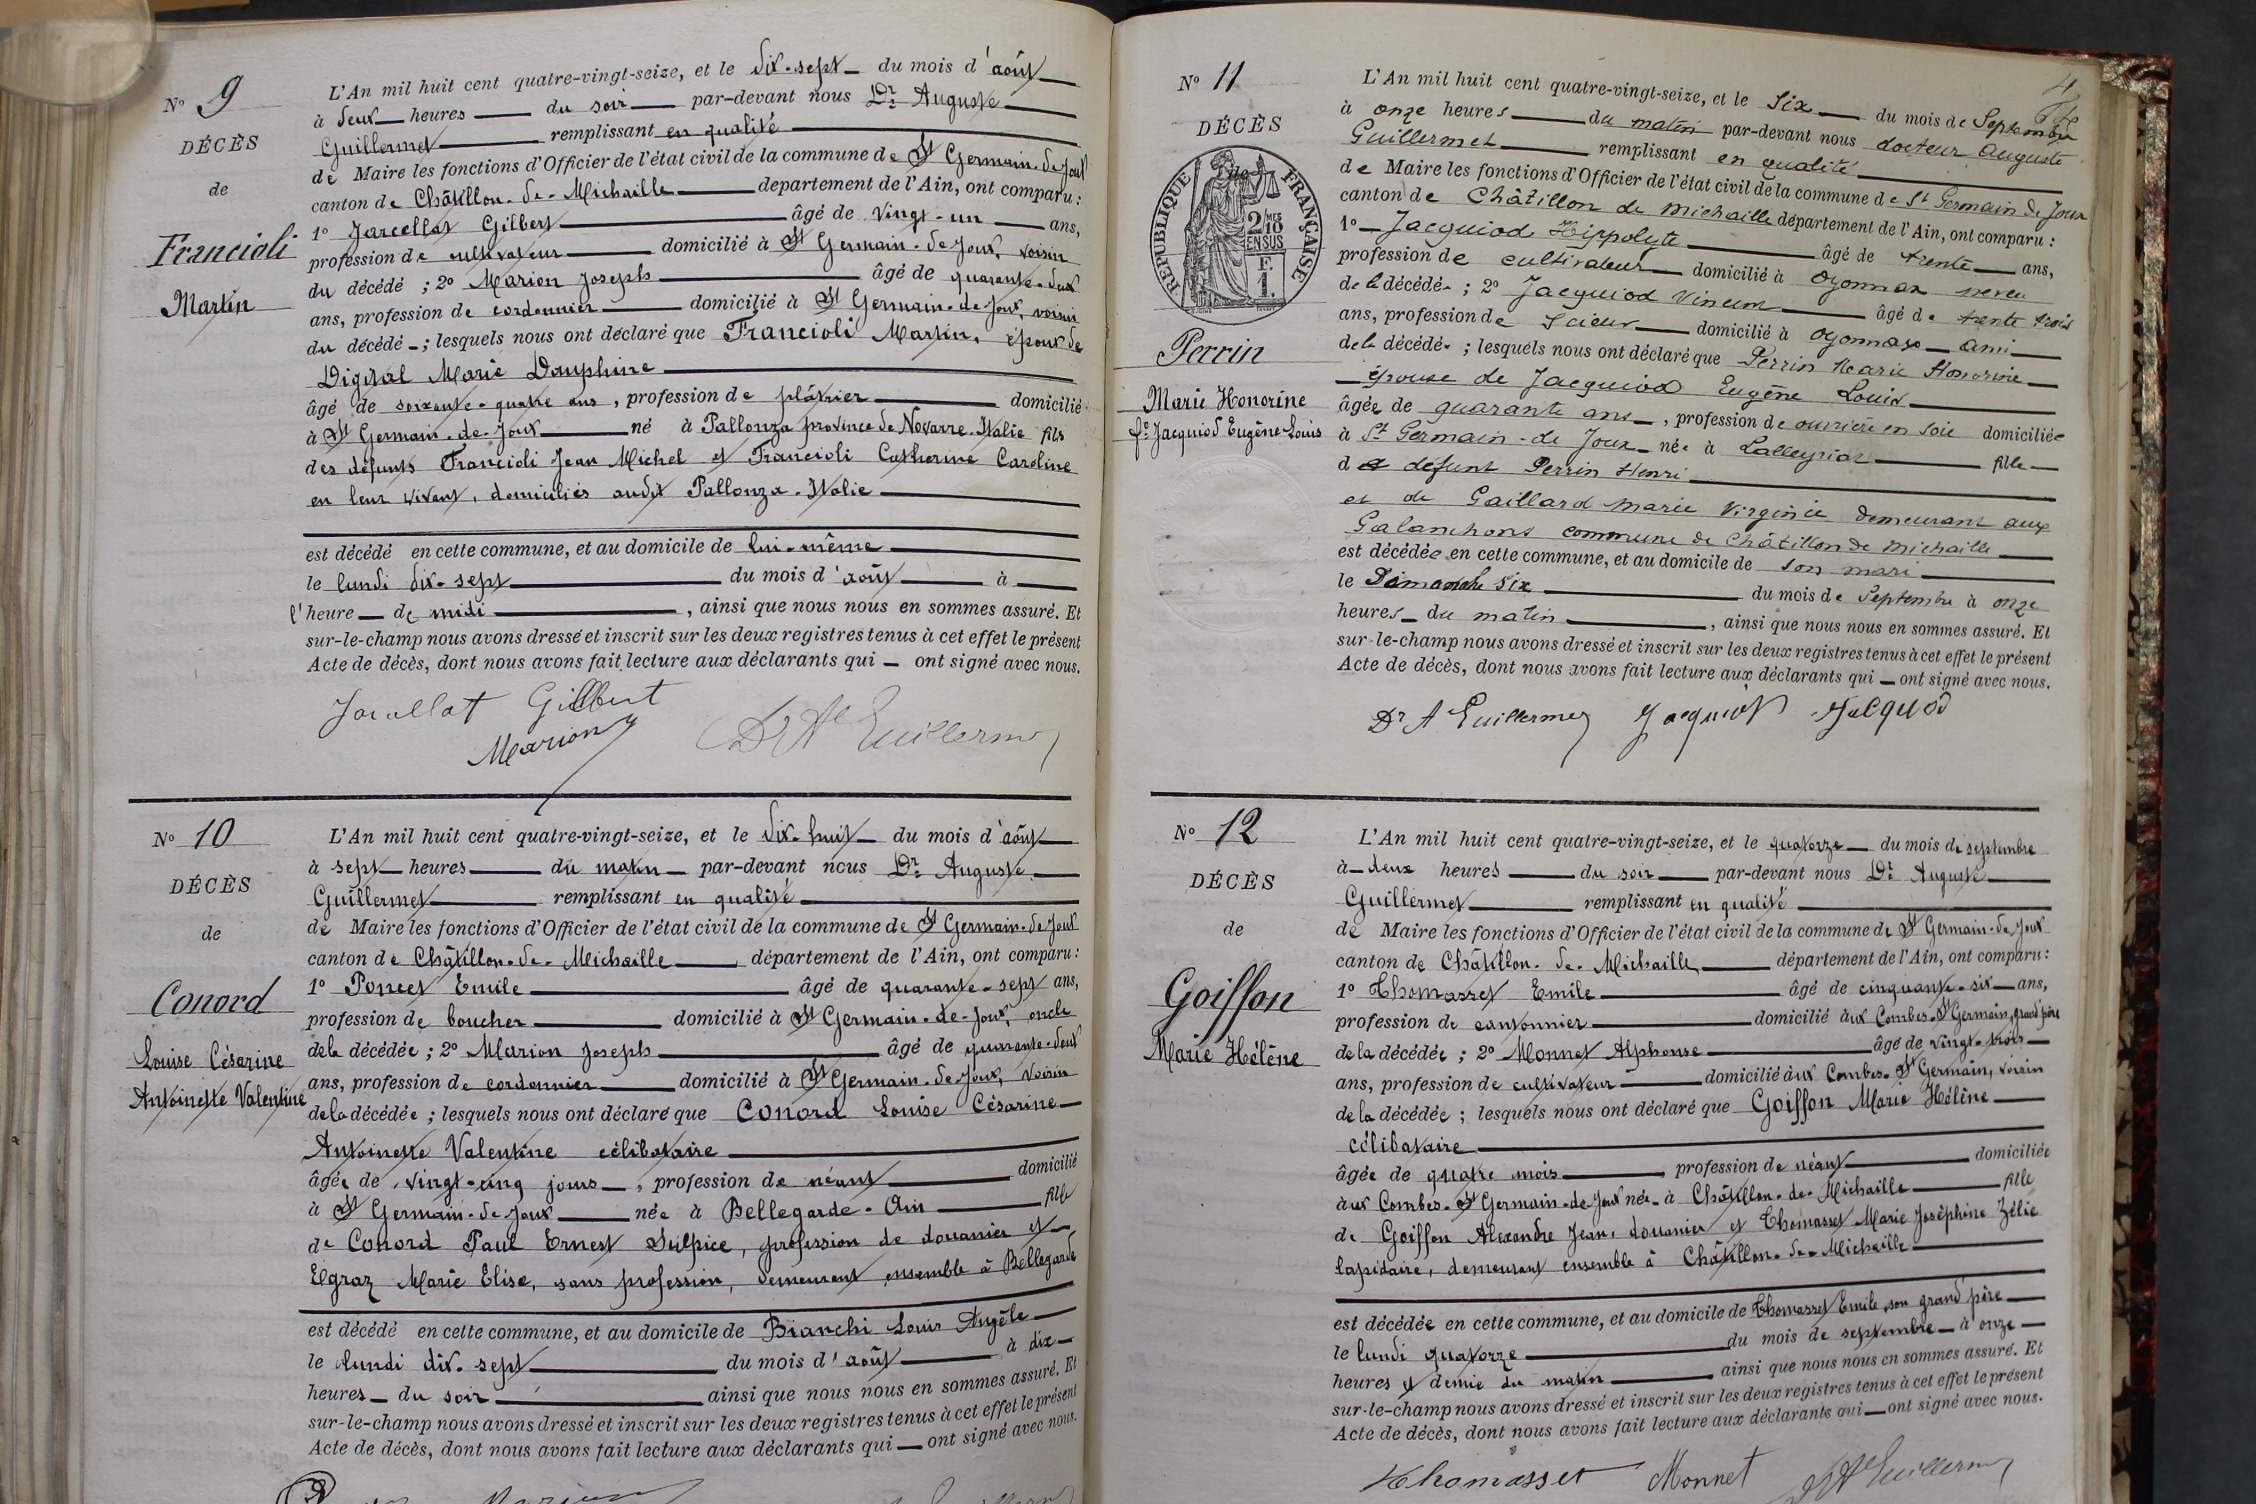 N° 9
DÉCÈS
de
Francioli
Martin
L'An mil huit cent quatre-vingt-seize, et le dix-sept du mois d'août
à deux heures du soir par-devant nous Dr Auguste
Guillermet remplissant en qualité
de Maire les fonctions d'Officier de l'état civil de la commune de St Germain-de-Joux
canton de Châtillon-de-Michaille departement de l'Ain, ont comparu :
1° Jarcellat Gilbert âgé de vingt-un ans,
profession de cultivateur domicilié à St Germain-de-Joux, voisin
du décédé ; 2° Marion Joseph âgé de quarante-deux
ans, profession de cordonnier domicilié à St Germain-de-Joux, voisin
du décédé ; lesquels nous ont déclaré que Francioli Martin, époux de
Digital Marie Dauphine
âgé de soixante-quatre ans, profession de plâtrier domicilié
à St Germain-de-Joux né à Pallonza province de Novarre-Italie fils
des défunts Francioli Jean Michel et Francioli Catherine Caroline
en leur vivant, domiciliés audit Pallonza-Italie
est décédé en cette commune, et au domicile de lui-même
le lundi dix-sept du mois d'août à
l'heure de midi, ainsi que nous nous en sommes assuré. Et
sur-le-champ nous avons dressé et inscrit sur les deux registres tenus à cet effet le présent
Acte de décès, dont nous avons fait lecture aux déclarants qui ont signé avec nous.
Gilbert
Marion Dr Ate Guillermet
N° 10
DÉCÈS
de
Conord
Louise Césarine
Antoinette Valentine
L'An mil huit cent quatre-vingt-seize, et le dix-huit du mois d'août
à sept heures du matin par-devant nous Dr Auguste
Guillermet remplissant en qualité
de Maire les fonctions d'Officier de l'état civil de la commune de St Germain-de-Joux
canton de Châtillon-de-Michaille, département de l'Ain, ont comparu :
1° Poncet Emile âgé de quarante-sept ans,
profession de boucher domicilié à St Germain-de-Joux, oncle
de la décédée ; 2° Marion Joseph âgé de quarante-deux
ans, profession de cordonnier domicilié à St Germain-de-Joux, voisin
de la décédée ; lesquels nous ont déclaré que Conord Louise Césarine
Antoinette Valentine célibataire
âgée de vingt-cinq jours, profession de néant domicilié
à St Germain-de-Joux née à Bellegarde-Ain fille
de Conord Paul Ernest Sulpice, profession de douanier et
Egraz Marie Elise, sans profession, demeurant ensemble à Bellegarde
est décédé en cette commune, et au domicile de Bianchi Louis Angèle
le lundi dix-sept du mois d'août à dix
heures du soir ainsi que nous nous en sommes assuré. Et
sur-le-champ nous avons dressé et inscrit sur les deux registres tenus à cet effet le présent
Acte de décès, dont nous avons fait lecture aux déclarants qui ont signé avec nous.
N° 11
DÉCÈS
de
RÉPUBLIQUE FRANÇAISE
2 MES
10
EN SUS
F.
1.
Perrin
Marie Honorine
fe Jacquiod Eugène Louis
L'An mil huit cent quatre-vingt-seize, et le Six du mois de Septembre
à onze heures du matin par-devant nous docteur Auguste
Guillermet remplissant en qualité
de Maire les fonctions d'Officier de l'état civil de la commune de St Germain de Joux
canton de Châtillon de Michaille département de l'Ain, ont comparu :
1° Jacquiod Hippolyte âgé de trente ans,
profession de cultivateur domicilié à Oyonnax neveu
de la décédée ; 2° Jacquiod Vincent âgé de trente trois
ans, profession de Scieur domicilié à Oyonnax ami
de la décédée ; lesquels nous ont déclaré que Perrin Marie Honorine
épouse de Jacquiod Eugène Louis
âgée de quarante ans, profession de ouvrière en soie domiciliée
à St Germain-de Joux née à Lalleyriat fille
de défunt Perrin Henri
et de Gaillard Marie Virginie demeurant aux
Galanchons commune de Châtillon de Michaille
est décédée en cette commune, et au domicile de son mari
le Dimanche Six du mois de Septembre à onze
heures du matin, ainsi que nous nous en sommes assuré. Et
sur-le-champ nous avons dressé et inscrit sur les deux registres tenus à cet effet le présent
Acte de décès, dont nous avons fait lecture aux déclarants qui ont signé avec nous.
Dr A Guillermet Jacquiod Jacquiod
N° 12
DÉCÈS
de
Goiffon
Marie Hélène
L'An mil huit cent quatre-vingt-seize, et le quatorze du mois de septembre
à deux heures du soir par-devant nous Dr Auguste
Guillermet remplissant en qualité
de Maire les fonctions d'Officier de l'état civil de la commune de St Germain-de-Joux
canton de Châtillon-de-Michaille, département de l'Ain, ont comparu :
1° Thomasset Emile âgé de cinquante-six ans,
profession de cantonnier domicilié aux Combes-St Germain, grand père
de la décédée ; 2° Monnet Alphonse âgé de vingt-trois
ans, profession de cultivateur domicilié aux Combes-St Germain, voisin
de la décédée ; lesquels nous ont déclaré que Goiffon Marie Hélène
célibataire
âgée de quatre mois, profession de néant domiciliée
aux Combes-St Germain-de-Joux née à Châtillon-de-Michaille fille
de Goiffon Alexandre Jean, douanier et Thomasset Marie Joséphine Zélie
lapidaire, demeurant ensemble à Châtillon-de-Michaille
est décédée en cette commune, et au domicile de Thomasset Emile, son grand père
le lundi quatorze du mois de septembre à onze
heures et demie du matin ainsi que nous nous en sommes assuré. Et
sur-le-champ nous avons dressé et inscrit sur les deux registres tenus à cet effet le présent
Acte de décès, dont nous avons fait lecture aux déclarants qui ont signé avec nous.
Thomasset Monnet Dr Ate Guillermet